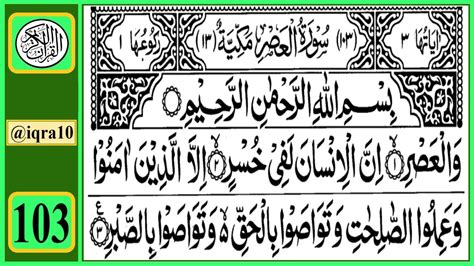 القرآن الكريم
اٰيَاتُهَا ٣ (١٠٣) سُوْرَةُ الْعَصْرِ مَكِّيَّةٌ (١٣) رُكُوْعُهَا ١
بِسْمِ اللّٰهِ الرَّحْمٰنِ الرَّحِيْمِ
@iqra10
وَالْعَصْرِ ۙ﴿١﴾ اِنَّ الْاِنْسَانَ لَفِيْ خُسْرٍ ۙ﴿٢﴾ اِلَّا الَّذِيْنَ اٰمَنُوْا
103
وَعَمِلُوا الصّٰلِحٰتِ وَتَوَاصَوْا بِالْحَقِّ ۙ۬ وَتَوَاصَوْا بِالصَّبْرِ ﴿٣﴾ ع